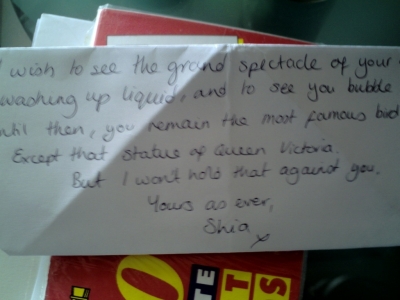 I wish to see the grand spectacle of your
washing up liquid, and to see you bubble
until then, you remain the most famous bird
Except that statue of Queen Victoria.
But I won't hold that against you.
Yours as ever,
Shia
x
O
TE
T
S